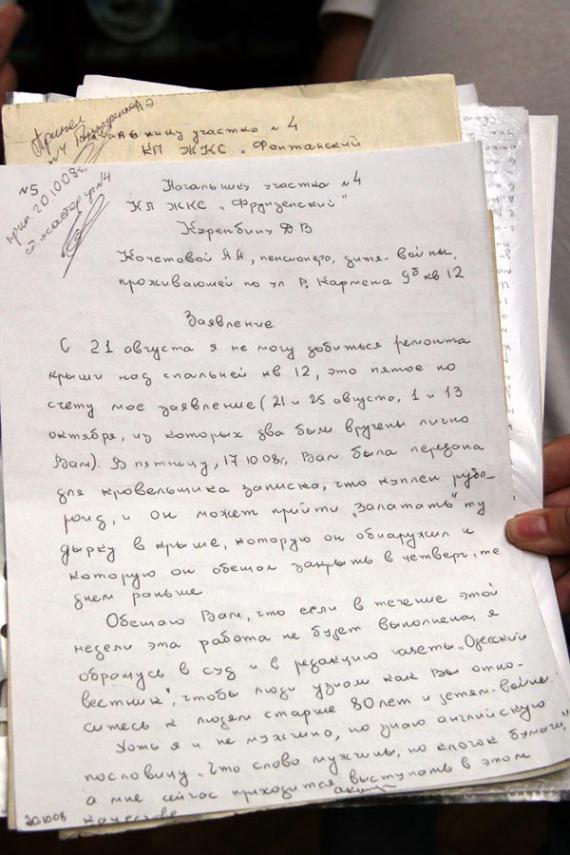 Принял
Начальнику участка № 4
КП ЖКС "Фонтанский
№5
прин. 20.10.08г.
Начальнику участка №4
КП ЖКС "Фрунзенский"
Кочетовой АА, пенсионер, дитя-войны,
проживающей по ул Р. Кармена 9б кв 12
Заявление
С 21 августа я не могу добиться ремонта
крыши над спальней кв 12, это пятое по
счету мое заявление (21 и 25 августа, 1 и 13
октября, из которых два были вручены лично
Вам). В пятницу, 17.10.08г, Вам была передана
для кровельщика записка, что куплен рубе-
роид, и он может прийти "залатать" ту
дырку в крыше, которую он обнаружил и
которую он обещал закрыть в четверг, те
днем раньше
Обещаю Вам, что если в течение этой
недели эта работа не будет выполнена, я
обращусь в суд и в редакцию газеты "Одесский
вестник", чтобы люди узнали как Вы отно-
ситесь к людям старше 80 лет и детям-войны.
Хоть я и не мужчина, но знаю английскую
пословицу "Что слово мужчины, но клочок бумаги,"
а мне сейчас приходится выступать в этом
качестве
20.10.08